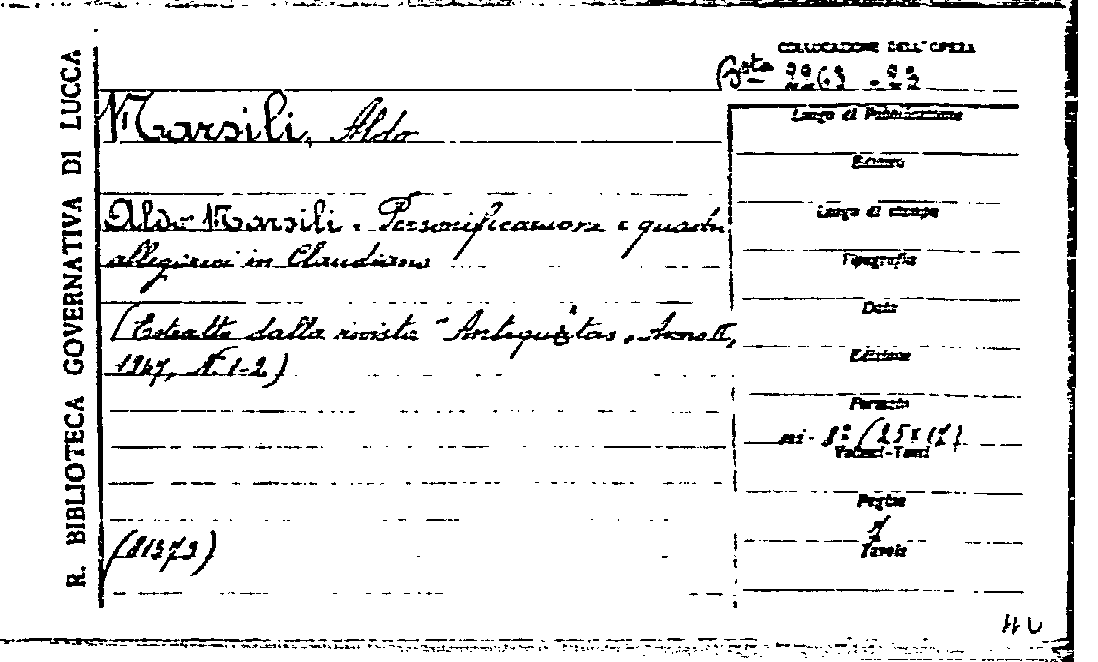 R. BIBLIOTECA GOVERNATIVA DI LUCCA
COLLOCAZIONE DELL'OPERA
Bsta 2263 - 22
Marsili, Aldo
Aldo Marsili. Personificazione e quadri
allegorici in Claudiano
(Estratto dalla rivista "Antiquitas, Anno II,
1947, N. 1-2)
(81373)
Luogo di Pubblicazione
Editore
Luogo di stampa
Tipografia
Data
Edizione
Formato
in-8° (25x17)
Volumi-Tomi
Pagine
7
Tavole